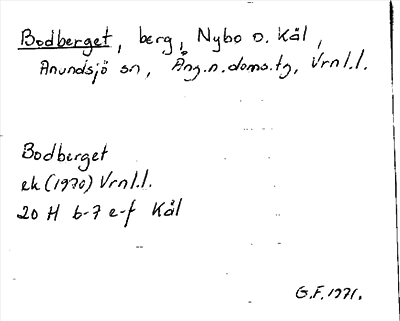 Bodberget, berg, Nybo o. Kål,
Anundsjö sn, Ång.n.doms.tg, Vrnl.l.
Bodberget
ek (1970) Vrnl.l.
20 H b-7 e-f Kål
G.F. 1971.